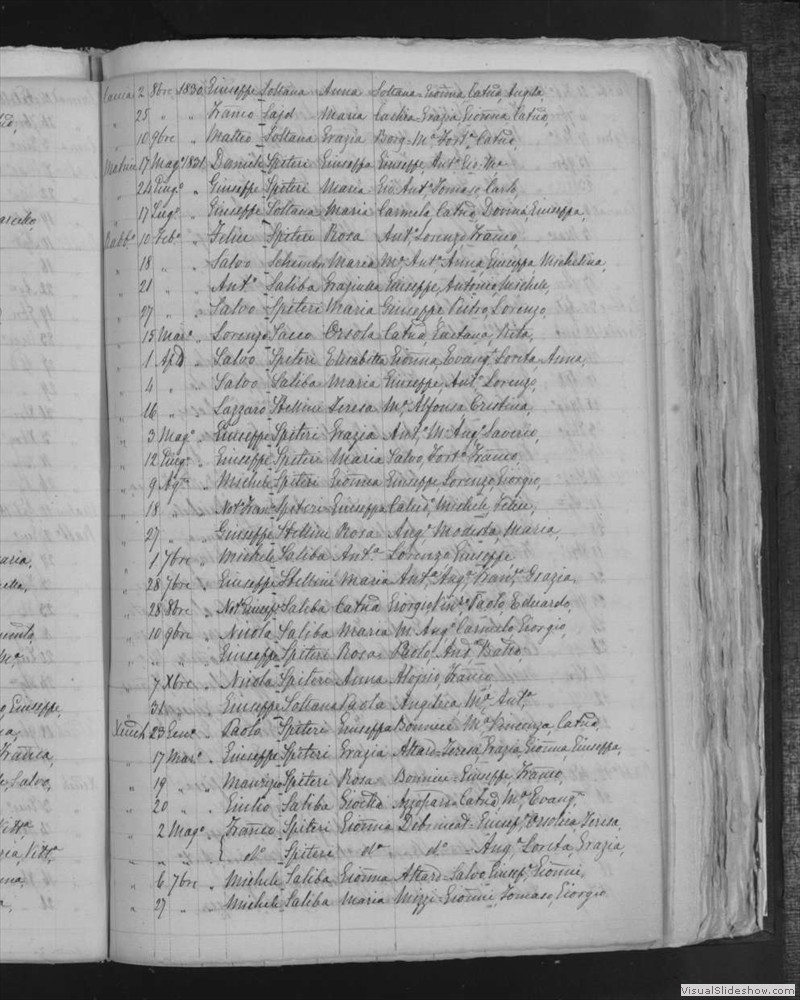 aria,
ella,
o Giuseppe,
Franca,
Salvo,
Vitt.ª
2 8bre 1830 Giuseppe Soltana Anna Soltana Gioñna Catnã, Angela,
" 25 " " Franco Sajd Maria Cachia Grazia Gioñna Catnã,
" 10 9bre " Matteo Soltana Grazia Borg Mª Fortª Catnã
17 Magº 1831 Daniele Spiteri Giuseppa Giuseppe Antº
" 24 Giugº " Giuseppe Spiteri Maria Gio Antº Tomaso Carlo
" 17 " Giuseppe Soltana Maria Carmela Catnã Giuseppa,
Rabtº 10 Febº " Felice Spiteri Rosa Antº Lorenzo, Franco,
" 18 " " Salvo Schembri Maria Mª Antª Anna, Giuseppa Michelina,
" 21 " " Antº Saliba Graziulla Giuseppe, Antonio Michele,
" 27 " " Salvo Spiteri Maria Giuseppe Pietro, Lorenzo,
" 15 Marº " Lorenzo Sacco Orsola Catnã, Gaetana, Rita,
" 1 Aple " Salvo Spiteri Elisabetta Gioñna, Evangª Loreta, Anna,
" 4 " " Salvo Saliba Maria Giuseppe, Antº Lorenzo,
" 16 " " Lazzaro Stellini Teresa Mª Alfonsa, Cristina,
" 3 Magº " Giuseppe Spiteri Grazia Antª Mª Angª Saverio,
" 12 Giugº " Giuseppe Spiteri Maria Salvo, Fortº Franco,
" 9 Agº " Michele Spiteri Gioñna Giuseppe Lorenzo, Giorgio,
" 18 " " Notº Franº Spiteri Giuseppa Catnã, Michele, Felice,
" 27 " " Giuseppe Stellini Rosa Angª Modesta, Maria,
" 1 7bre " Michele Saliba Antª Lorenzo, Giuseppe
" 28 7bre " Giuseppe Stellini Maria Antª, Angª Franca Grazia,
" 28 8bre " Notº Giusepe Saliba Catnã Giorgio Vinº Paolo, Eduardo,
" 10 9bre " Nicola Saliba Maria Mª Angª Carmelo Giorgio,
" " " " Giuseppe Spiteri Rosa Paolo, Andª
" 7 Xbre " Nicola Spiteri Anna Aloisio, Franco
" 31 " " Giuseppe Soltana Paola Angelica Mª Antª
23 Genº " Paolo Spiteri Giuseppa Bonnici Mª Vincenza, Catnã,
" 17 Marº " Giuseppe Spiteri Grazia Attard Teresa, Grazia, Gioñna, Giuseppa,
" 19 " " Maurizio Spiteri Rosa Bonnici Giuseppe Franco,
" 20 " " Giulio Saliba Azopardi Catnã, Mª Evangª
" 2 Magº " Franco Spiteri Gioñna Giusepª Orsolica, Teresa,
" " " { dº Spiteri dº dº Angª Loreta, Grazia,
" 6 7bre " Michele Saliba Gioñna Attard Salvo, Giusepº Gionni,
" 27 " " Michele Saliba Maria Mizzi Gionni, Tomaso, Giorgio
VisualSlideshow.com